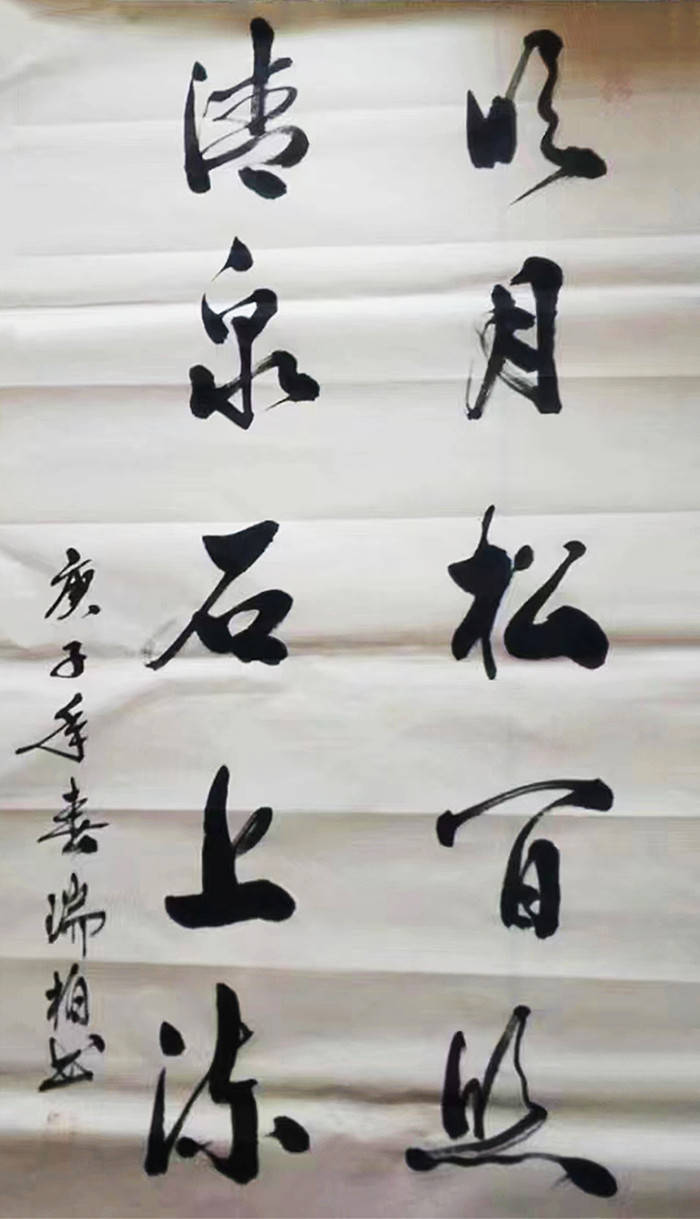 明月松间照
清泉石上流
庚子年春瑞柏书